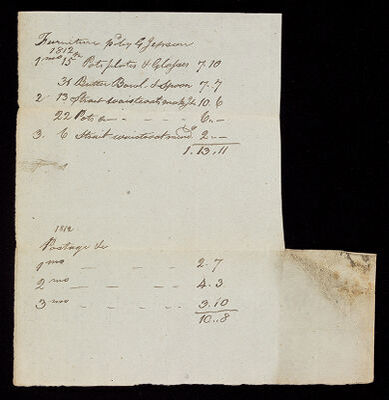 Furniture pd by G Jepson
1812
1 mo 15th Pots plates & Glasses 7.10
31 Butter Bowl & Spoon 7.7
2 13 Strait waistcoats 10.6
22 Pots &c — 6.—
3. 6 Strait waistcoat mend. 2.—
1.13.11
1812
Postage &c
1 mo — — — — 2.7
2 mo — — — — 4.3
3 mo — — — — 3.10
10..8